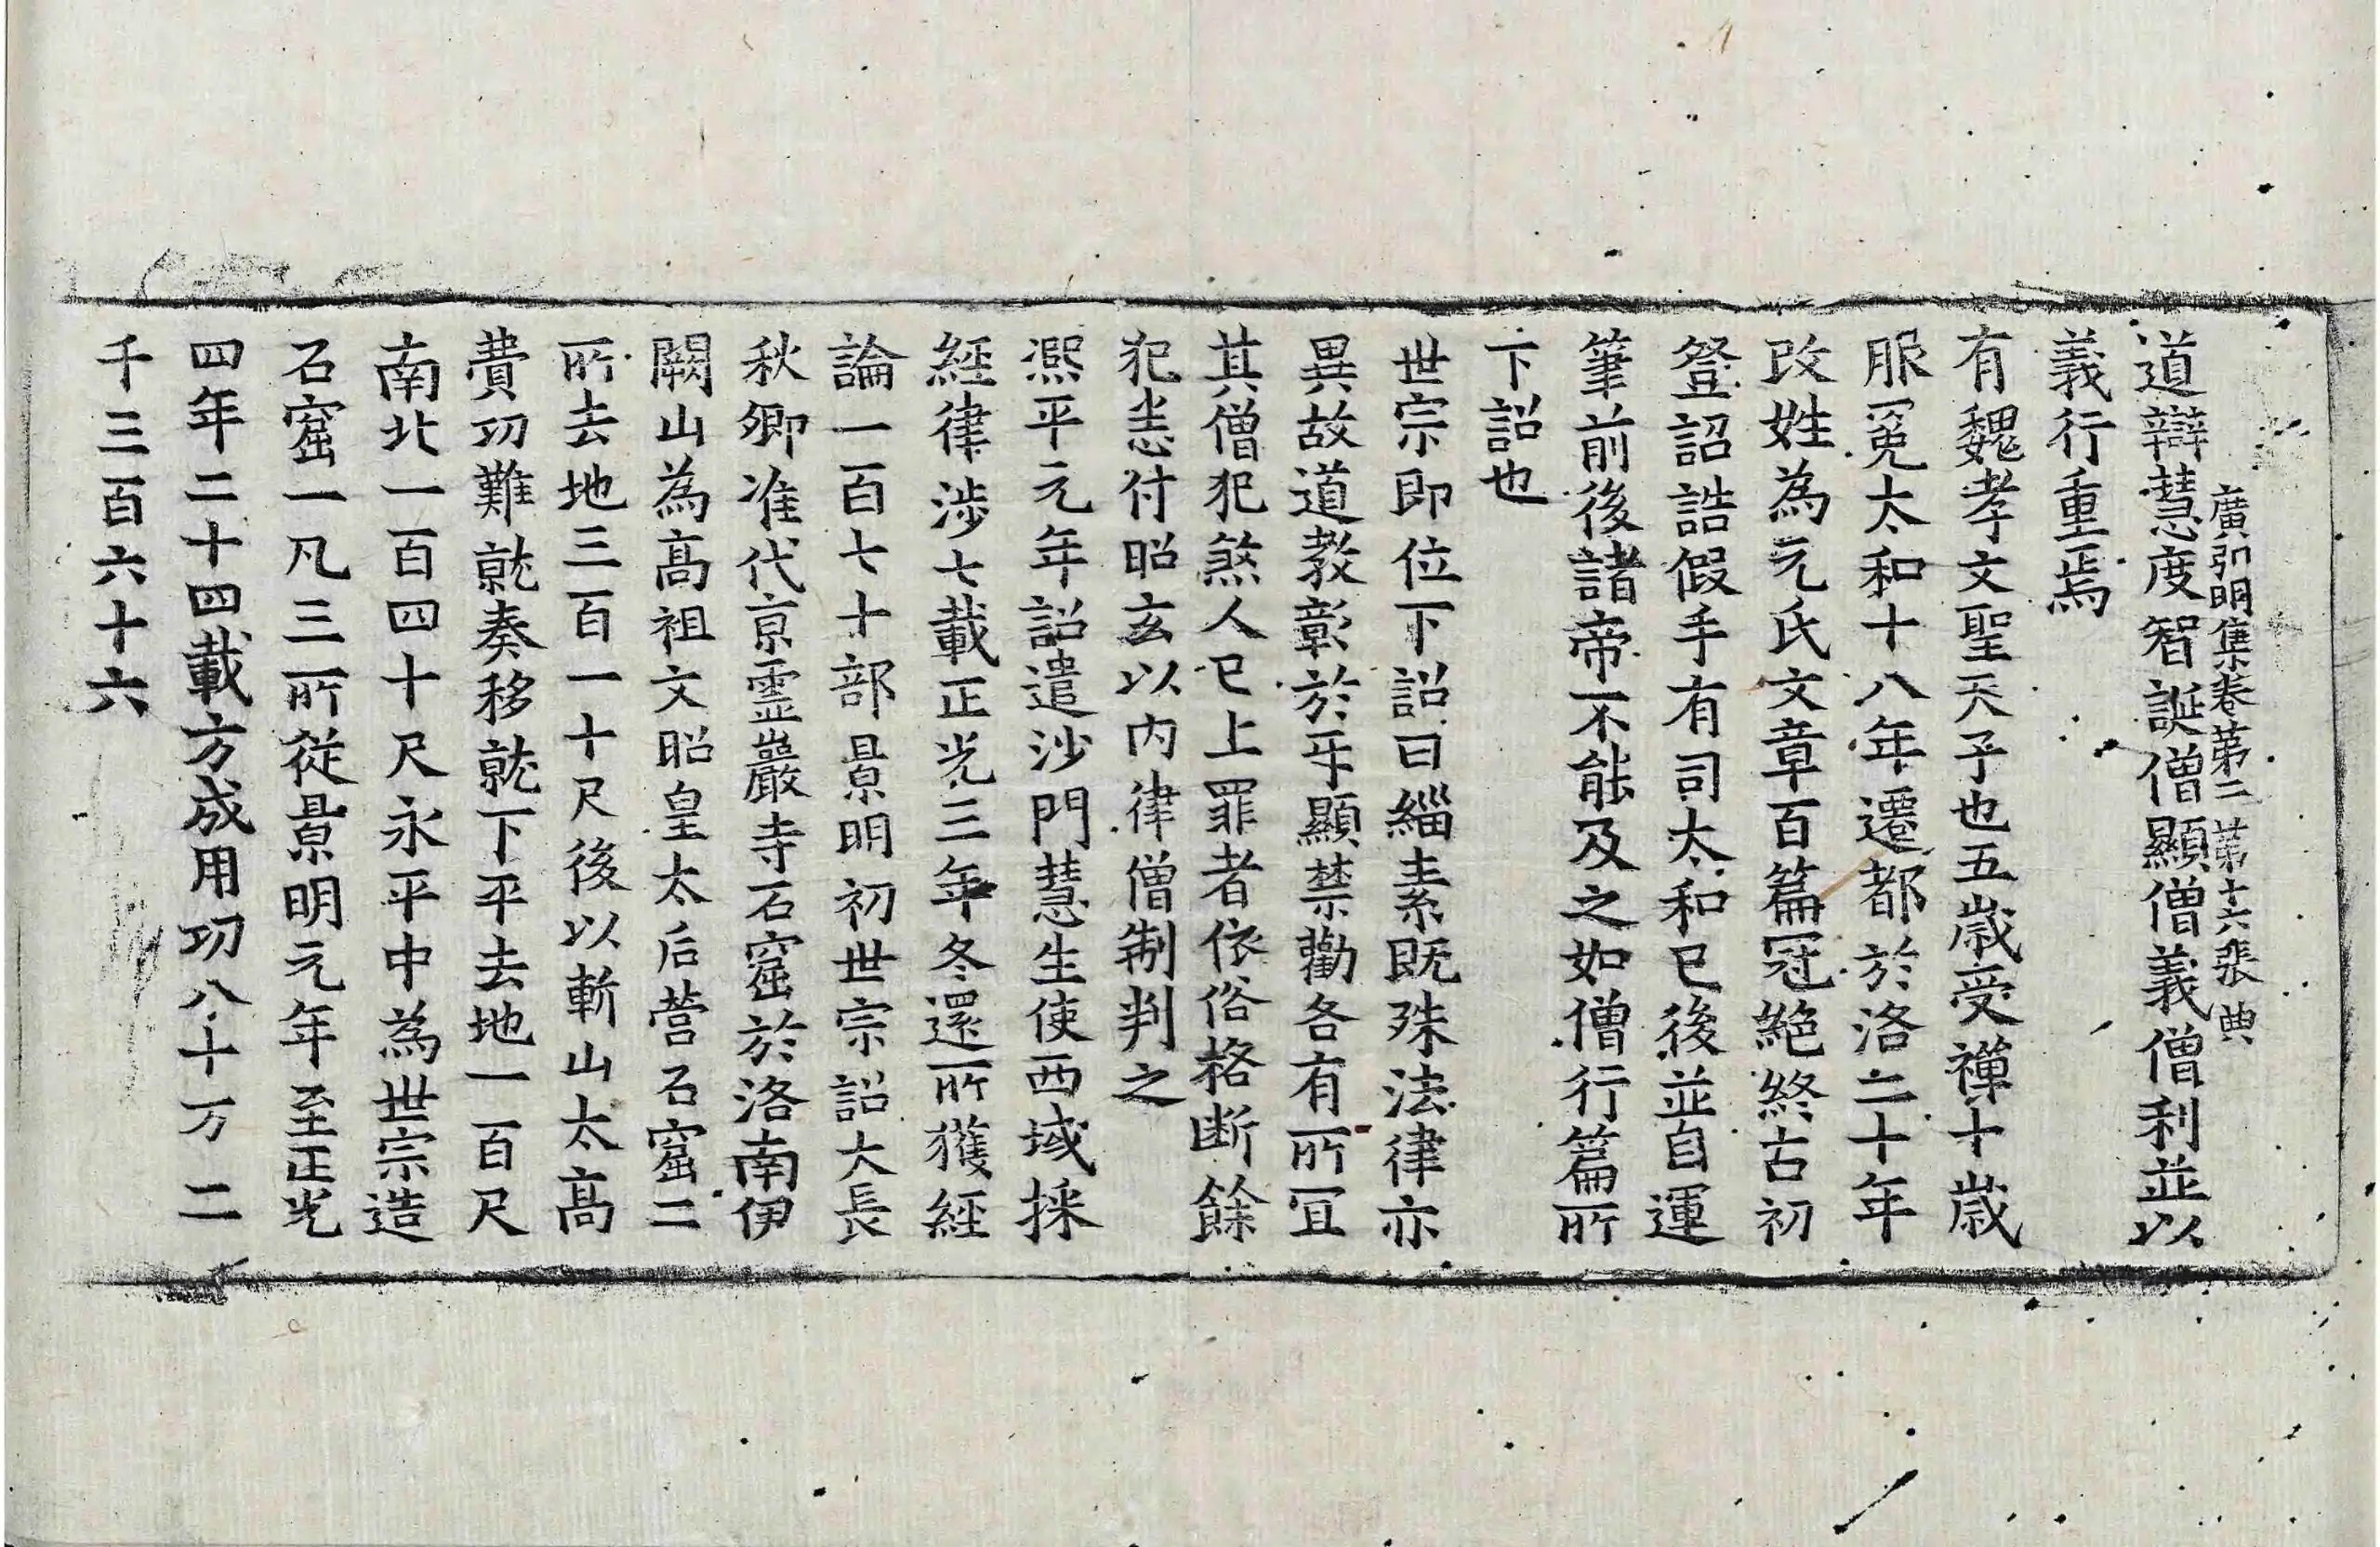 廣弘明集卷第二 第十六張 典
道辯慧度智誕僧顯僧義僧利並以
義行重焉
有魏孝文聖天子也五歲受禪十歲
服冕太和十八年遷都於洛二十年
改姓為元氏文章百篇冠絕終古初
登詔誥假手有司太和已後並自運
筆前後諸帝不能及之如僧行篇所
下詔也
世宗即位下詔曰緇素既殊法律亦
異故道教彰於互顯禁勸各有所冝
其僧犯煞人已上罪者依俗格断餘
犯悉付昭玄以内律僧制判之
熙平元年詔遣沙門慧生使西域採
經律涉七載正光三年冬還所獲經
論一百七十部景明初世宗詔大長
秋卿准代京靈巖寺石窟於洛南伊
闕山為高祖文昭皇太后营石窟二
所去地三百一十尺後以斬山太高
費功難就奏移就下平去地一百尺
南北一百四十尺永平中為世宗造
石窟一凡三所從景明元年至正光
四年二十四載方成用功八十万二
千三百六十六